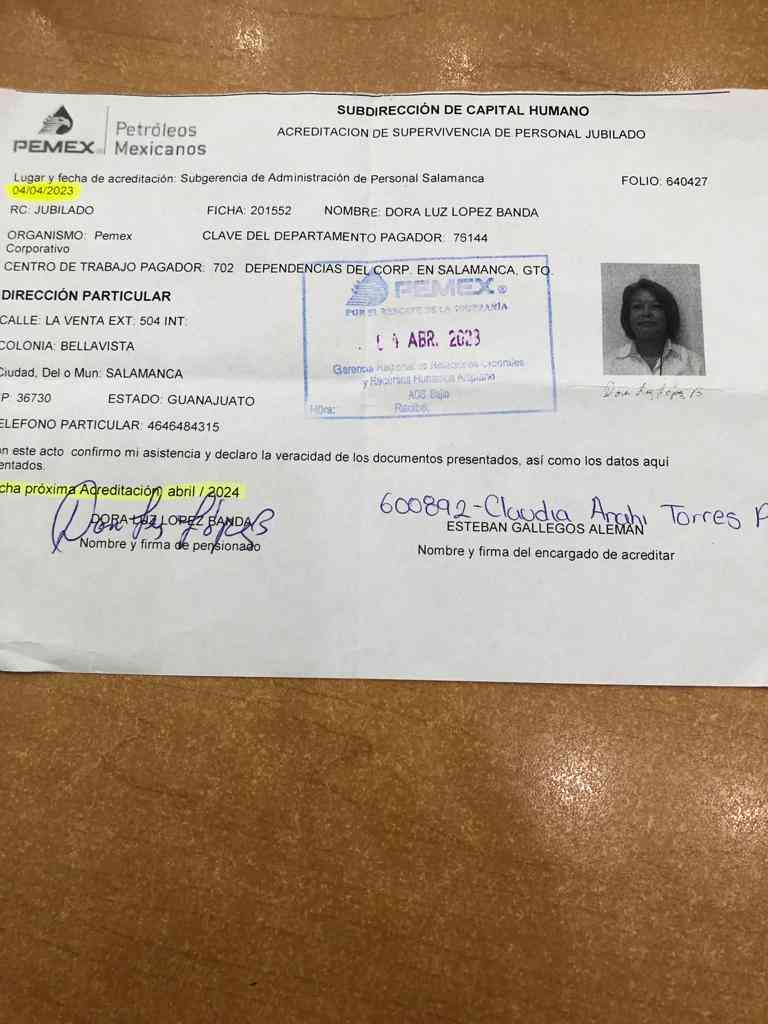 SUBDIRECCIÓN DE CAPITAL HUMANO
ACREDITACION DE SUPERVIVENCIA DE PERSONAL JUBILADO
PEMEX® Petróleos Mexicanos
Lugar y fecha de acreditación: Subgerencia de Administración de Personal Salamanca
04/04/2023
FOLIO: 640427
RC: JUBILADO FICHA: 201552 NOMBRE: DORA LUZ LOPEZ BANDA
ORGANISMO: Pemex Corporativo CLAVE DEL DEPARTAMENTO PAGADOR: 76144
CENTRO DE TRABAJO PAGADOR: 702 DEPENDENCIAS DEL CORP. EN SALAMANCA, GTO.
PEMEX®
POR EL RESCATE DE LA SOBERANÍA
ABR. 2023
Gerencia Regional de Relaciones Laborales
y Recursos Humanos
Hora: Recibe:
DIRECCIÓN PARTICULAR
CALLE: LA VENTA EXT: 504 INT:
COLONIA: BELLAVISTA
Ciudad, Del o Mun: SALAMANCA
P: 36730 ESTADO: GUANAJUATO
ELEFONO PARTICULAR: 4646484315
Dora Luz López B
on este acto confirmo mi asistencia y declaro la veracidad de los documentos presentados, así como los datos aquí
entados.
cha próxima Acreditación abril / 2024
Dora Luz López B
DORA LUZ LOPEZ BANDA
Nombre y firma de pensionado
600892-Claudia Anahi Torres
ESTEBAN GALLEGOS ALEMAN
Nombre y firma del encargado de acreditar